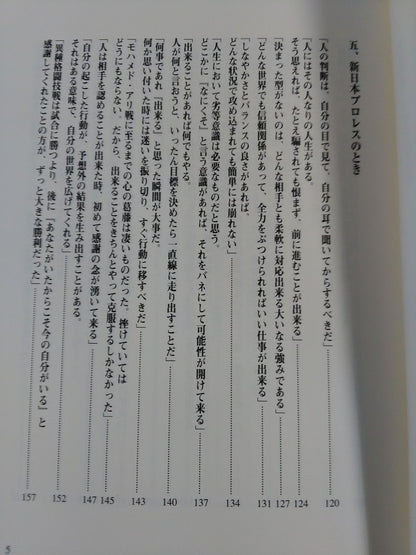 五、新日本プロレスのとき
「人の判断は、自分の目で見て、自分の耳で聞いてからするべきだ」……120
「人にはその人なりの人生がある。
そう思えれば、たとえ騙されても恨まず、前に進むことが出来る」……124
「決まった型がないのは、どんな相手とも柔軟に対応出来る大いなる強みである」……127
「どんな世界でも信頼関係があって、全力をぶつけられればいい仕事が出来る」……131
「しなやかさとバランスの良さがあれば、
どんな状況で攻め込まれても簡単には崩れない」……134
「人生において劣等意識は必要なものだと思う。
どこかに「なにくそ」と言う意識があれば、それをバネにして可能性が開けて来る」……137
「出来ることがあれば何でもやる。
人が何と言おうと、いったん目標を決めたら一直線に走り出すことだ」……140
「何事であれ「出来る」と思った瞬間が大事だ。
何か思い付いた時には迷いを振り切り、すぐ行動に移すべきだ」……143
「モハメド・アリ戦に至るまでの心の葛藤は凄いものだった。挫けていては
どうにもならない。だから、出来ることをきちんとやって克服するしかなかった」……145
「人は相手を認めることが出来た時、初めて感謝の念が湧いて来る」……147
「自分の起こした行動が、予想外の結果を生み出すことがある。
それはある意味で、自分の世界を広げてくれる」……152
「異種格闘技戦は試合に勝つより、後に「あなたがいたからこそ今の自分がいる」と
感謝してくれたことの方が、ずっと大きな勝利だった」……157
5